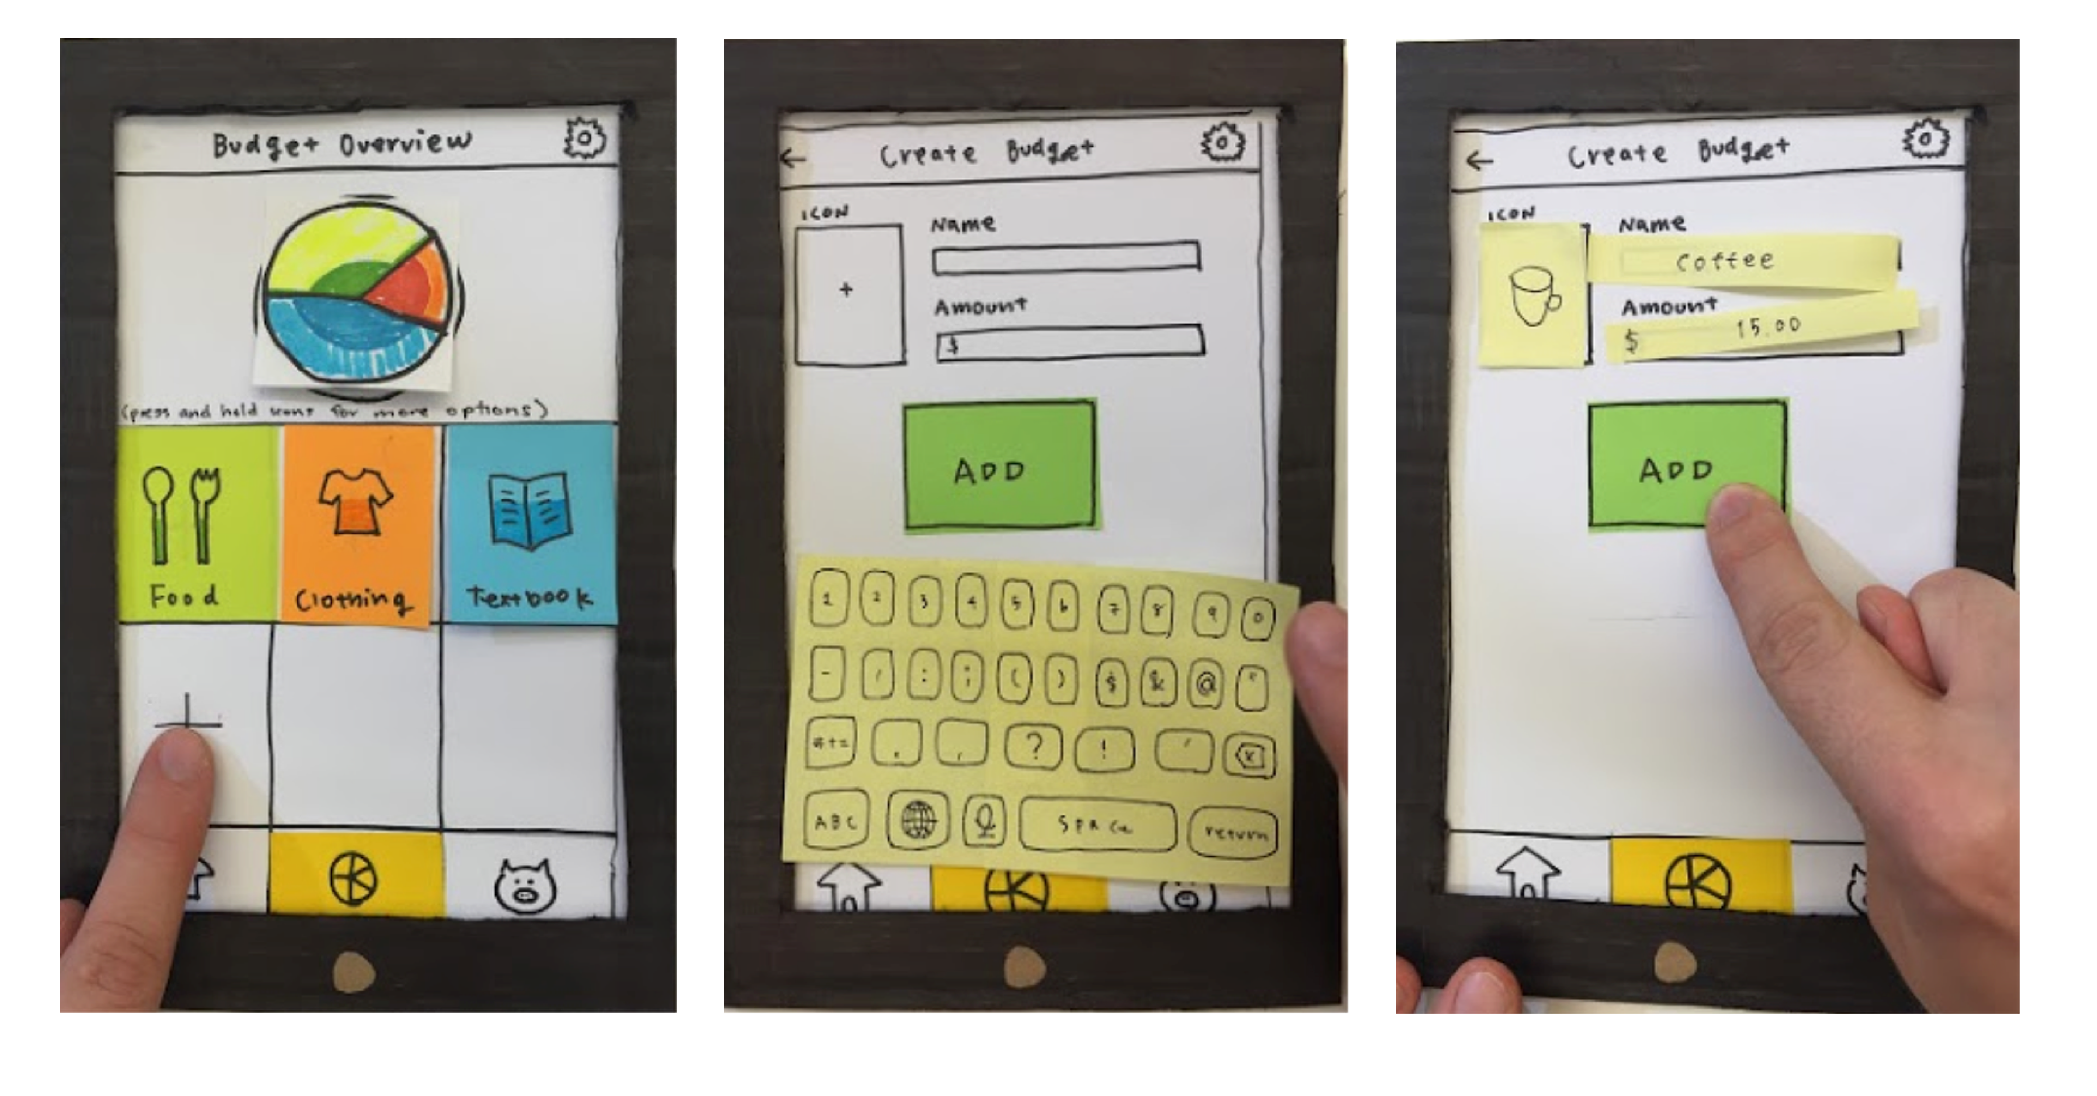 Budget Overview
(press and hold icons for more options)
Food
Clothing
Textbook
+
← Create Budget
ICON
Name
+
Amount
$
ADD
1 2 3 4 5 6 7 8 9 0
- / : ; ( ) $ & @ "
#+= . , ? ! '
ABC SPACE return
← Create Budget
ICON
Name
Coffee
Amount
$ 15.00
ADD